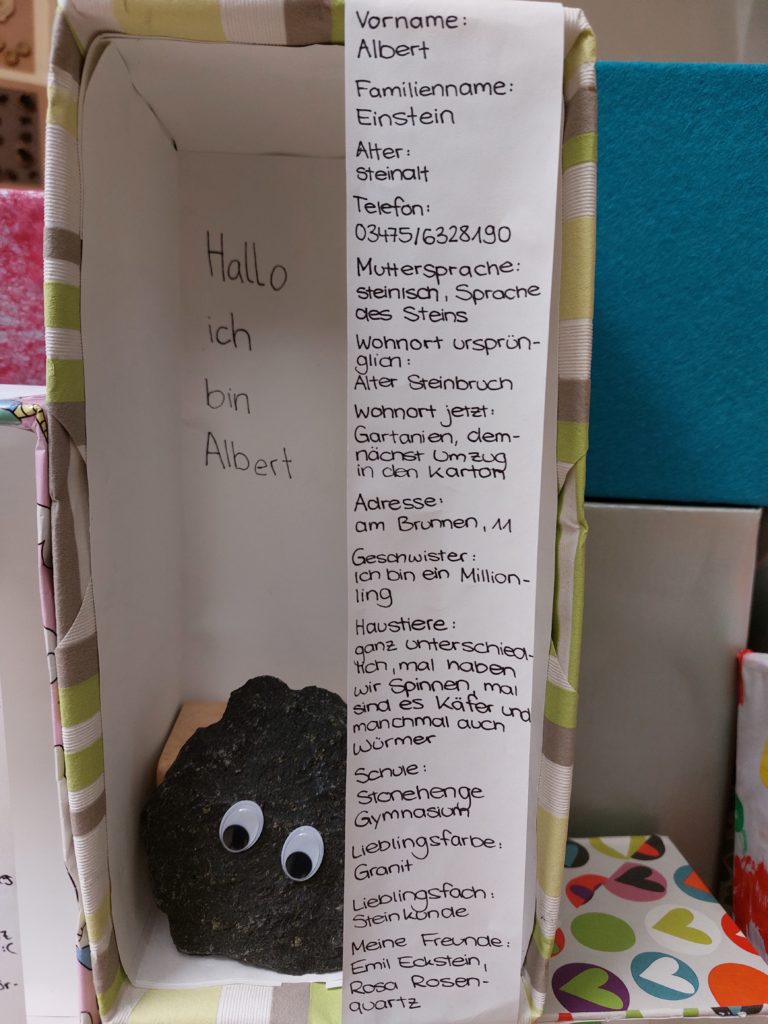 Hallo
ich
bin
Albert
Vorname:
Albert
Familienname:
Einstein
Alter:
steinalt
Telefon:
03475/6328190
Muttersprache:
steinisch, Sprache
des Steins
Wohnort ursprün-
glich:
Alter Steinbruch
Wohnort jetzt:
Gartanien, dem-
nächst Umzug
in den Karton
Adresse:
am Brunnen, 11
Geschwister:
Ich bin ein Million-
ling
Haustiere:
ganz unterschied-
lich, mal haben
wir Spinnen, mal
sind es Käfer und
manchmal auch
Würmer
Schule:
Stonehenge
Gymnasium
Lieblingsfarbe:
Granit
Lieblingsfach:
Steinkunde
Meine Freunde:
Emil Eckstein,
Rosa Rosen-
quartz